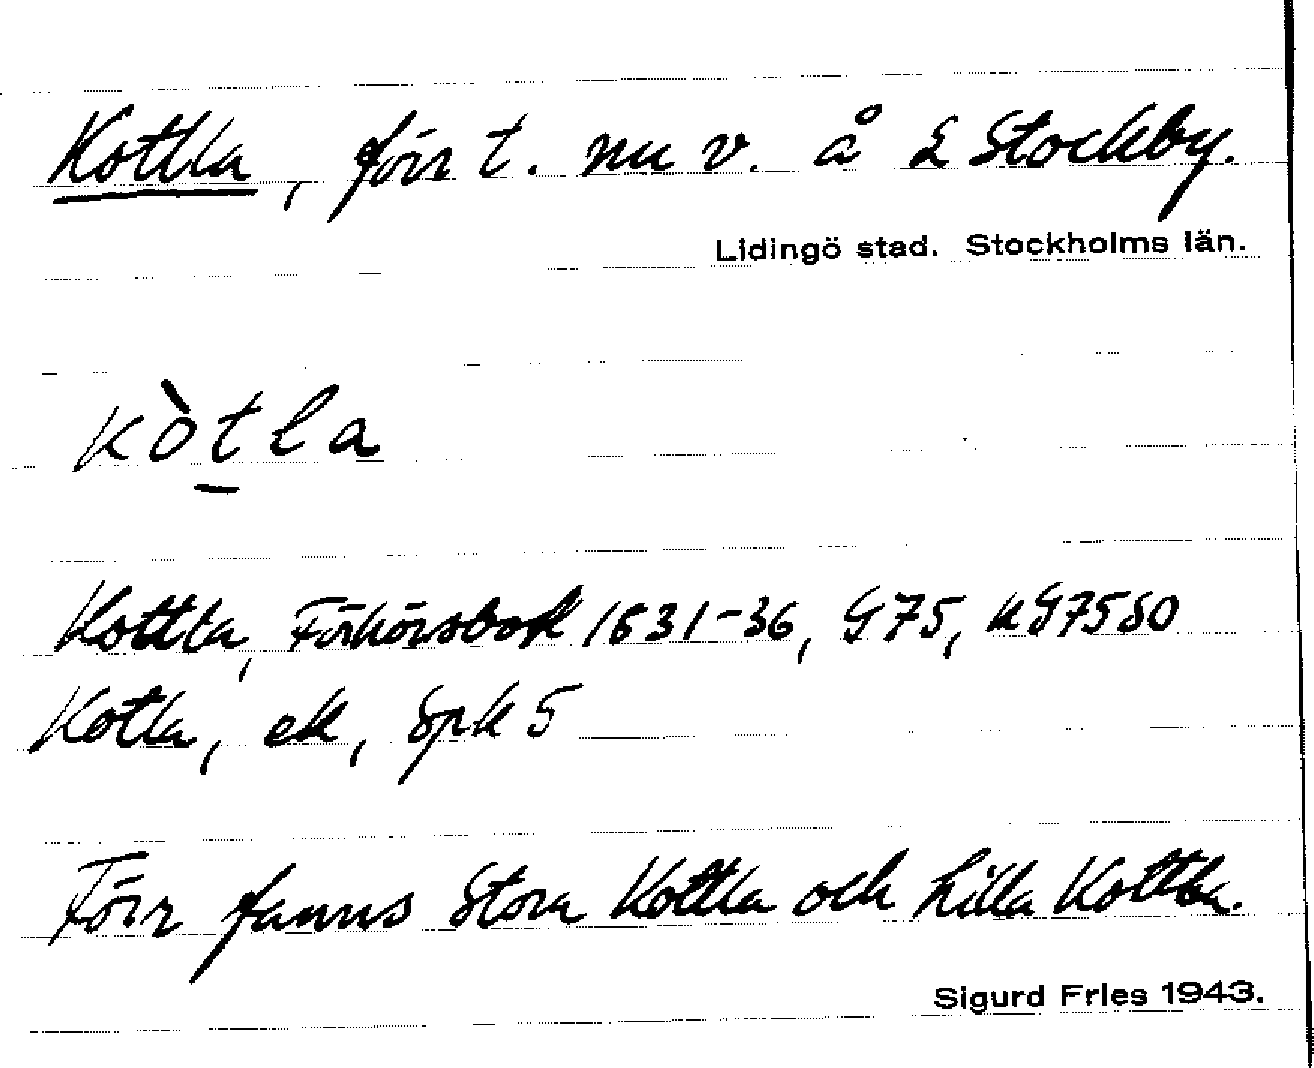 Kottla, förr t. nu v. å L Stockby.
Lidingö stad. Stockholms län.
kòtla
Kottla, Förhörsbok 1831-36, G75, KG7580
Kotla, ek, öpk 5
Förr fanns Stora Kottla och Lilla Kottla.
Sigurd Fries 1943.